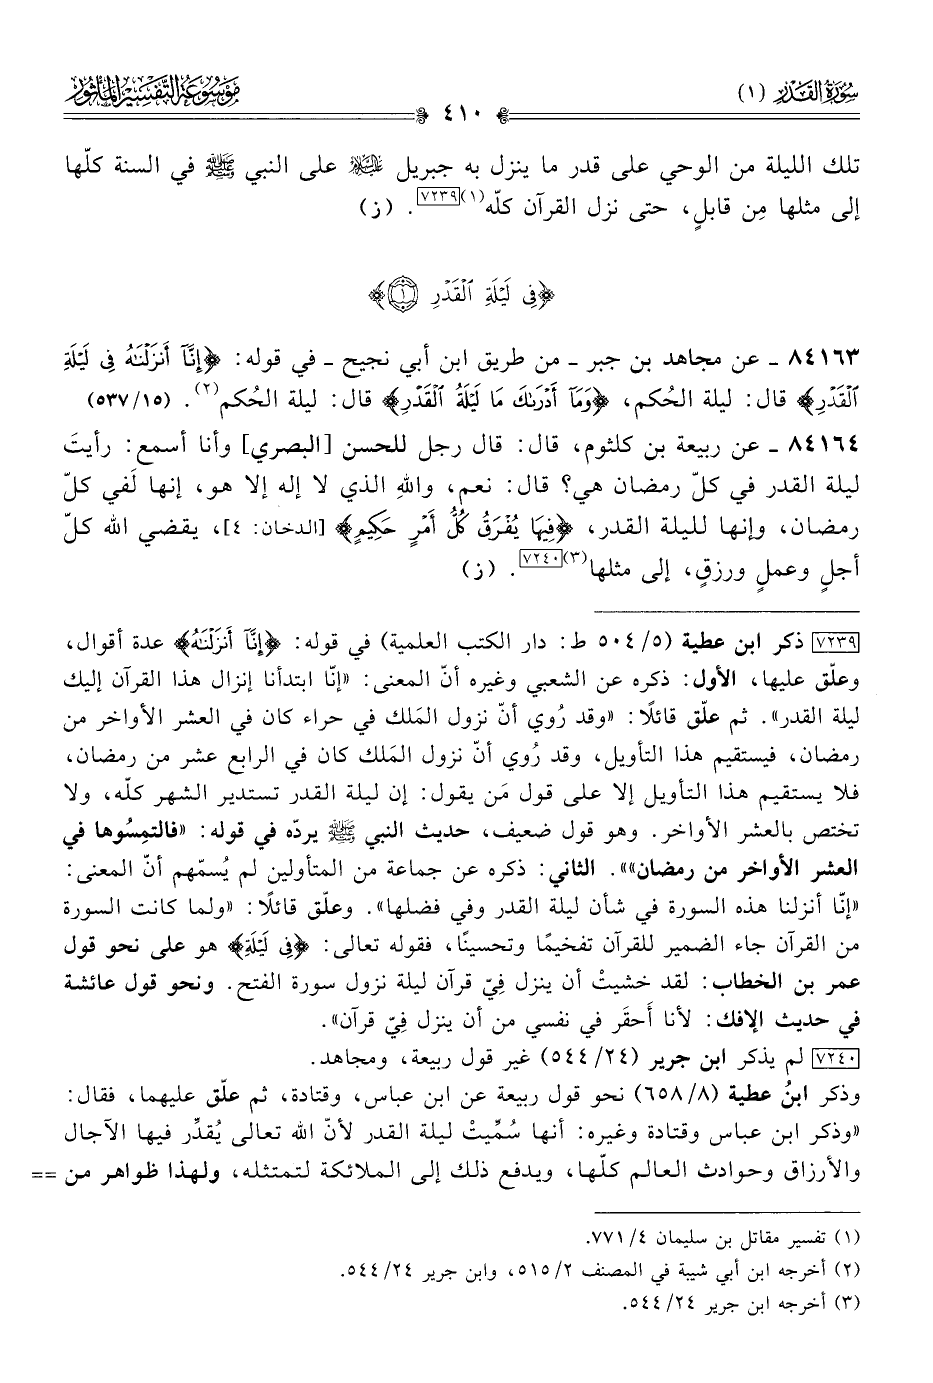 سُورَةُ القَدْر (١)
٤١٠
مَوْسُوعَة التَّفْسِير المَأْثُور
تلك الليلة من الوحي على قدر ما ينزل به جبريل عليه السلام على النبي ﷺ في السنة كلّها
إلى مثلها مِن قابلٍ، حتى نزل القرآن كلّه(١)[٧٢٣٩]. (ز)
﴿فِى لَيْلَةِ ٱلْقَدْرِ ١﴾
٨٤١٦٣ ـ عن مجاهد بن جبر ـ من طريق ابن أبي نجيح ـ في قوله: ﴿إِنَّآ أَنزَلْنَٰهُ فِى لَيْلَةِ
ٱلْقَدْرِ﴾ قال: ليلة الحُكم، ﴿وَمَآ أَدْرَىٰكَ مَا لَيْلَةُ ٱلْقَدْرِ﴾ قال: ليلة الحُكم(٢). (٥٣٧/١٥)
٨٤١٦٤ ـ عن ربيعة بن كلثوم، قال: قال رجل للحسن [البصري] وأنا أسمع: رأيتَ
ليلة القدر في كلّ رمضان هي؟ قال: نعم، واللهِ الذي لا إله إلا هو، إنها لَفي كلّ
رمضان، وإنها لليلة القدر، ﴿فِيهَا يُفْرَقُ كُلُّ أَمْرٍ حَكِيمٍ﴾ [الدخان: ٤]، يقضي الله كلّ
أجلٍ وعملٍ ورزقٍ، إلى مثلها(٣)[٧٢٤٠]. (ز)
[٧٢٣٩] ذكر ابن عطية (٥٠٤/٥ ط: دار الكتب العلمية) في قوله: ﴿إِنَّآ أَنزَلْنَٰهُ﴾ عدة أقوال،
وعلّق عليها، الأول: ذكره عن الشعبي وغيره أنّ المعنى: «إنّا ابتدأنا إنزال هذا القرآن إليك
ليلة القدر». ثم علّق قائلًا: «وقد رُوي أنّ نزول المَلك في حراء كان في العشر الأواخر من
رمضان، فيستقيم هذا التأويل، وقد رُوي أنّ نزول المَلك كان في الرابع عشر من رمضان،
فلا يستقيم هذا التأويل إلا على قول مَن يقول: إن ليلة القدر تستدير الشهر كلّه، ولا
تختص بالعشر الأواخر. وهو قول ضعيف، حديث النبي ﷺ يردّه في قوله: «فالتمِسُوها في
العشر الأواخر من رمضان»». الثاني: ذكره عن جماعة من المتأولين لم يُسمّهم أنّ المعنى:
«إنّا أنزلنا هذه السورة في شأن ليلة القدر وفي فضلها». وعلّق قائلًا: «ولما كانت السورة
من القرآن جاء الضمير للقرآن تفخيمًا وتحسينًا، فقوله تعالى: ﴿فِى لَيْلَةِ﴾ هو على نحو قول
عمر بن الخطاب: لقد خشيتْ أن ينزل فِيّ قرآن ليلة نزول سورة الفتح. ونحو قول عائشة
في حديث الإفك: لأنا أَحقَر في نفسي من أن ينزل فِيّ قرآن».
[٧٢٤٠] لم يذكر ابن جرير (٥٤٤/٢٤) غير قول ربيعة، ومجاهد.
وذكر ابنُ عطية (٦٥٨/٨) نحو قول ربيعة عن ابن عباس، وقتادة، ثم علّق عليهما، فقال:
«وذكر ابن عباس وقتادة وغيره: أنها سُمِّيتْ ليلة القدر لأنّ الله تعالى يُقدِّر فيها الآجال
والأرزاق وحوادث العالم كلّها، ويدفع ذلك إلى الملائكة لتمتثله، ولهذا ظواهر من ==
(١) تفسير مقاتل بن سليمان ٤/ ٧٧١.
(٢) أخرجه ابن أبي شيبة في المصنف ٢/ ٥١٥، وابن جرير ٢٤/ ٥٤٤.
(٣) أخرجه ابن جرير ٢٤/ ٥٤٤.